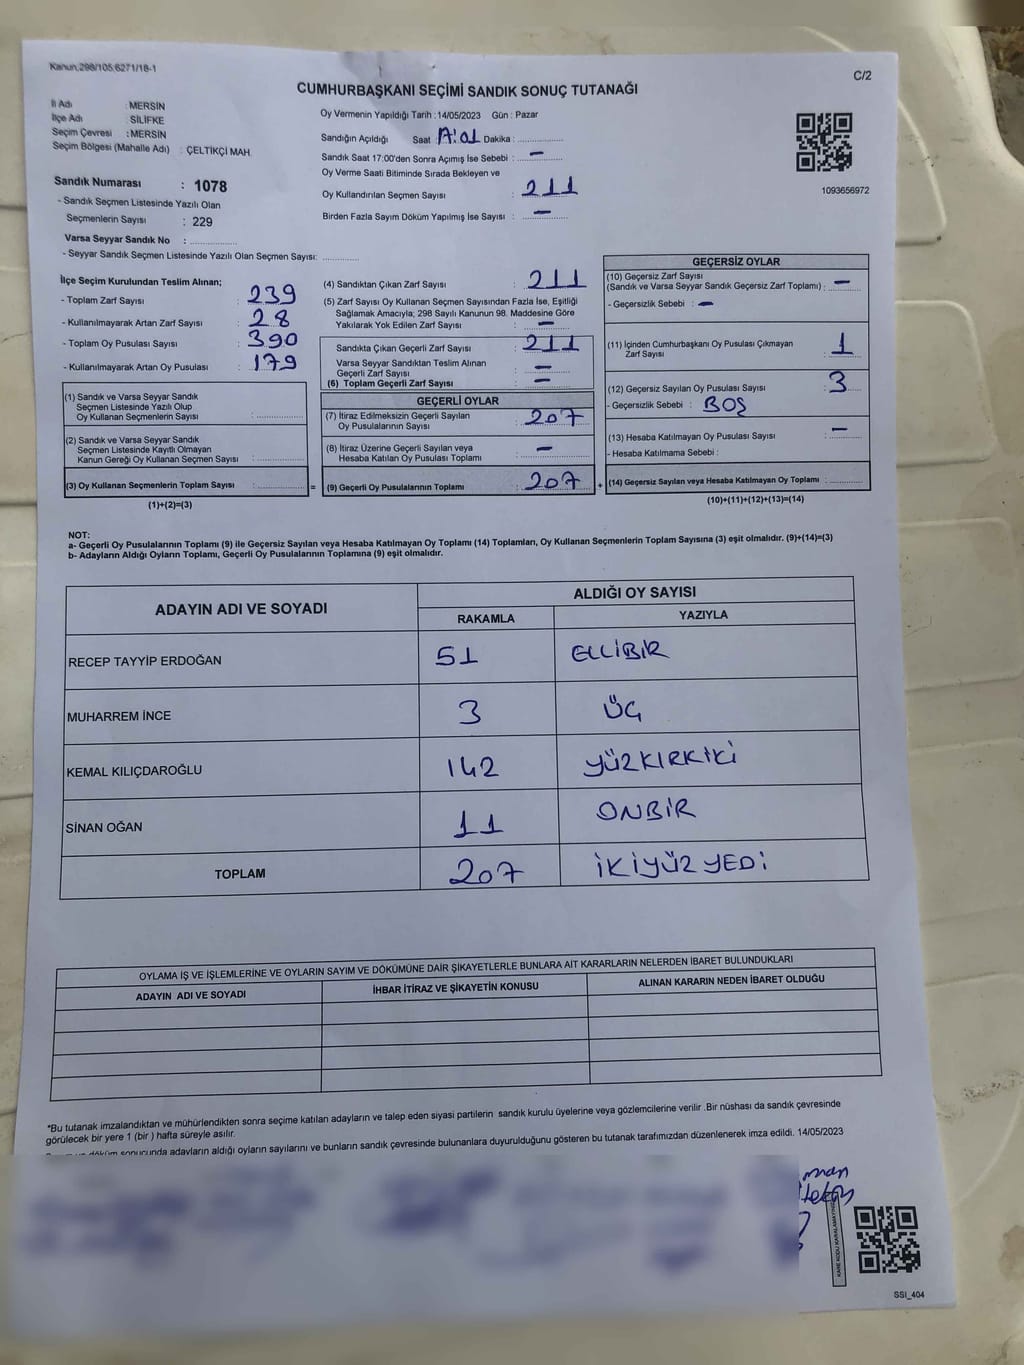 Kanun.298/105,6271/18-1
C/2
CUMHURBAŞKANI SEÇİMİ SANDIK SONUÇ TUTANAĞI
İl Adı : MERSİN
İlçe Adı : SİLİFKE
Seçim Çevresi : MERSİN
Seçim Bölgesi (Mahalle Adı) : ÇELTİKÇİ MAH.
Sandık Numarası : 1078
- Sandık Seçmen Listesinde Yazılı Olan
Seçmenlerin Sayısı : 229
Varsa Seyyar Sandık No : ..............
- Seyyar Sandık Seçmen Listesinde Yazılı Olan Seçmen Sayısı: ............
Oy Vermenin Yapıldığı Tarih : 14/05/2023 Gün : Pazar
Sandığın Açıldığı Saat Dakika : ..............
Sandık Saat 17:00'den Sonra Açımış İse Sebebi : —
Oy Verme Saati Bitiminde Sırada Bekleyen ve
Oy Kullandırılan Seçmen Sayısı : 211
Birden Fazla Sayım Döküm Yapılmış İse Sayısı : —
1093656972
İlçe Seçim Kurulundan Teslim Alınan;
- Toplam Zarf Sayısı : 239
- Kullanılmayarak Artan Zarf Sayısı : 28
- Toplam Oy Pusulası Sayısı : 390
- Kullanılmayarak Artan Oy Pusulası : 179
(1) Sandık ve Varsa Seyyar Sandık
Seçmen Listesinde Yazılı Olup
Oy Kullanan Seçmenlerin Sayısı : ............
(2) Sandık ve Varsa Seyyar Sandık
Seçmen Listesinde Kayıtlı Olmayan
Kanun Gereği Oy Kullanan Seçmen Sayısı : ............
(3) Oy Kullanan Seçmenlerin Toplam Sayısı : ............
(1)+(2)=(3)
=
(4) Sandıktan Çıkan Zarf Sayısı : 211
(5) Zarf Sayısı Oy Kullanan Seçmen Sayısından Fazla İse, Eşitliği
Sağlamak Amacıyla; 298 Sayılı Kanunun 98. Maddesine Göre
Yakılarak Yok Edilen Zarf Sayısı : —
Sandıkta Çıkan Geçerli Zarf Sayısı : 211
Varsa Seyyar Sandıktan Teslim Alınan
Geçerli Zarf Sayısı : —
(6) Toplam Geçerli Zarf Sayısı : —
GEÇERLİ OYLAR
(7) İtiraz Edilmeksizin Geçerli Sayılan
Oy Pusulalarının Sayısı : 207
(8) İtiraz Üzerine Geçerli Sayılan veya
Hesaba Katılan Oy Pusulası Toplamı : —
(9) Geçerli Oy Pusulalarının Toplamı : 207
+
GEÇERSİZ OYLAR
(10) Geçersiz Zarf Sayısı
(Sandık ve Varsa Seyyar Sandık Geçersiz Zarf Toplamı) : —
- Geçersizlik Sebebi : —
(11) İçinden Cumhurbaşkanı Oy Pusulası Çıkmayan
Zarf Sayısı : 1
(12) Geçersiz Sayılan Oy Pusulası Sayısı : 3
- Geçersizlik Sebebi : BOŞ
(13) Hesaba Katılmayan Oy Pusulası Sayısı : —
- Hesaba Katılmama Sebebi :
(14) Geçersiz Sayılan veya Hesaba Katılmayan Oy Toplamı : ............
(10)+(11)+(12)+(13)=(14)
NOT:
a- Geçerli Oy Pusulalarının Toplamı (9) ile Geçersiz Sayılan veya Hesaba Katılmayan Oy Toplamı (14) Toplamları, Oy Kullanan Seçmenlerin Toplam Sayısına (3) eşit olmalıdır. (9)+(14)=(3)
b- Adayların Aldığı Oyların Toplamı, Geçerli Oy Pusulalarının Toplamına (9) eşit olmalıdır.
ADAYIN ADI VE SOYADI
ALDIĞI OY SAYISI
RAKAMLA YAZIYLA
RECEP TAYYİP ERDOĞAN 51 ELLİBİR
MUHARREM İNCE 3 ÜÇ
KEMAL KILIÇDAROĞLU 142 YÜZKIRKİKİ
SİNAN OĞAN 11 ONBİR
TOPLAM 207 İKİYÜZYEDİ
OYLAMA İŞ VE İŞLEMLERİNE VE OYLARIN SAYIM VE DÖKÜMÜNE DAİR ŞİKAYETLERLE BUNLARA AİT KARARLARIN NELERDEN İBARET BULUNDUKLARI
ADAYIN ADI VE SOYADI İHBAR İTİRAZ VE ŞİKAYETİN KONUSU ALINAN KARARIN NEDEN İBARET OLDUĞU
*Bu tutanak imzalandıktan ve mühürlendikten sonra seçime katılan adayların ve talep eden siyasi partilerin sandık kurulu üyelerine veya gözlemcilerine verilir .Bir nüshası da sandık çevresinde
görülecek bir yere 1 (bir ) hafta süreyle asılır.
döküm sonucunda adayların aldığı oyların sayılarını ve bunların sandık çevresinde bulunanlara duyurulduğunu gösteren bu tutanak tarafımızdan düzenlenerek imza edildi. 14/05/2023
KARE KODU KARALAMAYINIZ
SSI_404